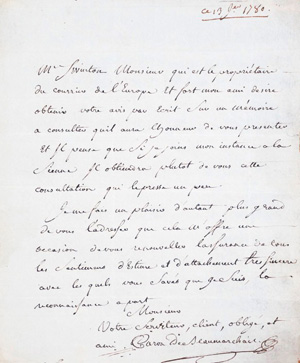 ce 13 1780.
Mr. Swinton Monsieur qui est le propriétaire
du courrier de l'Europe et fort mon ami desire
obtenir votre avis par écrit sur un mémoire
a consulter quil aura lhonneur de vous presenter
et Il pense que si je joins mon instance a la
sienne Il obtiendra plutot de vous cette
consultation qui le presse un peu.
Je me fais un plaisir d'autant plus grand
de vous ladresser que cela m offre une
occasion de vous renouveller lassurance de tous
les sentimens d'Estime et d'attachement tres sincere
avec les quels vous savés que je suis, la
reconnaissance a part
Monsieur
Votre serviteur, client, obligé, et
ami Caron de Beaumarchais